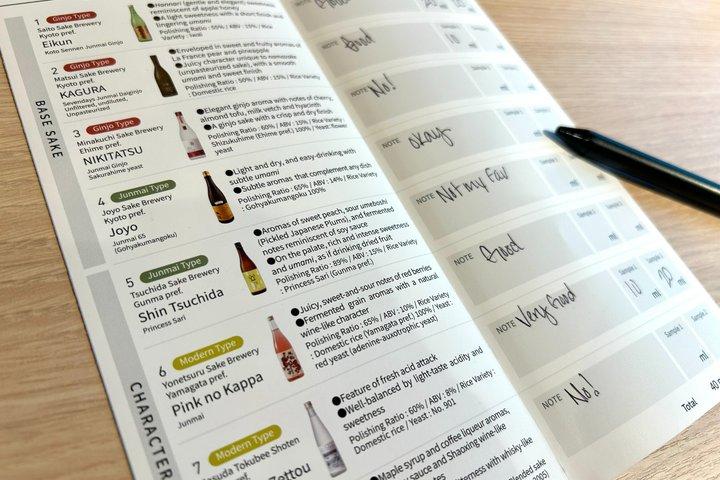 BASE SAKE
1 Ginjo Type
Saito Sake Brewery
Kyoto pref.
Eikun
Koto Sennen Junmai Ginjo
●Honnori (gentle and elegant) sweetness
reminiscent of apple honey
●A light sweetness with a short finish and
lingering umami
Polishing Ratio : 55% / ABV : 15% / Rice
Variety : Iwai
2 Ginjo Type
Matsui Sake Brewery
Kyoto pref.
KAGURA
Sevendays Junmai Daiginjo
Unfiltered, undiluted,
Unpasteurized
●Enveloped in sweet and fruity aromas of
La France pear and pineapple
●Juicy character unique to namazake
(unpasteurized sake), with a smooth
umami and sweet finish
Polishing Ratio : 50% / ABV : 15% / Rice Variety
: Domestic rice
3 Ginjo Type
Minakuchi Sake Brewery
Ehime pref.
NIKITATSU
Junmai Ginjo
Sakurahime yeast
●Elegant ginjo aroma with notes of cherry,
almond tofu, milk vetch and hyacinth
●A ginjo sake with a crisp and dry finish
Polishing Ratio : 60% / ABV : 15% / Rice Variety :
Shizukuhime (Ehime pref.) 100% / Yeast: flower
yeast
4 Junmai Type
Joyo Sake Brewery
Kyoto pref.
Joyo
Junmai 65
(Gohyakumangoku)
●Light and dry, and easy-drinking with
subtle umami
●Subtle aromas that complement any dish
Polishing Ratio : 65% / ABV : 14% / Rice Variety
: Gohyakumangoku 100%
CHARACTER
5 Junmai Type
Tsuchida Sake Brewery
Gunma pref.
Shin Tsuchida
Princess Sari
●Aromas of sweet peach, sour umeboshi
(Pickled Japanese Plums), and fermented
notes reminiscent of soy sauce
●On the palate, rich and intense sweetness
and umami, as if drinking dried fruit
Polishing Ratio : 89% / ABV : 15% / Rice Variety
: Princess Sari (Gunma pref.)
6 Modern Type
Yonetsuru Sake Brewery
Yamagata pref.
Pink no Kappa
Junmai
●Juicy, sweet-and-sour notes of red berries
●Fermented grain aromas with a natural
wine-like character
Polishing Ratio : 65% / ABV : 10% / Rice Variety
: Domestic rice (Yamagata pref.) 100% / Yeast :
red yeast (adenine-auxotrophic yeast)
7 Modern Type
Tokubee Shoten
●Feature of fresh acid attack
●Well-balanced by light-taste acidity and
sweetness
Polishing Ratio : 60% / ABV : 8% / Rice Variety :
Domestic rice / Yeast : No. 901
●Maple syrup and coffee liqueur aromas,
sauce and Shaoxing wine-like
with whisky-like
Good
No!
NOTE okay
NOTE Not my fav
NOTE Good
NOTE Very Good
Sample 1 10 ml
Sample 2 20 ml
NOTE No!
Total 40